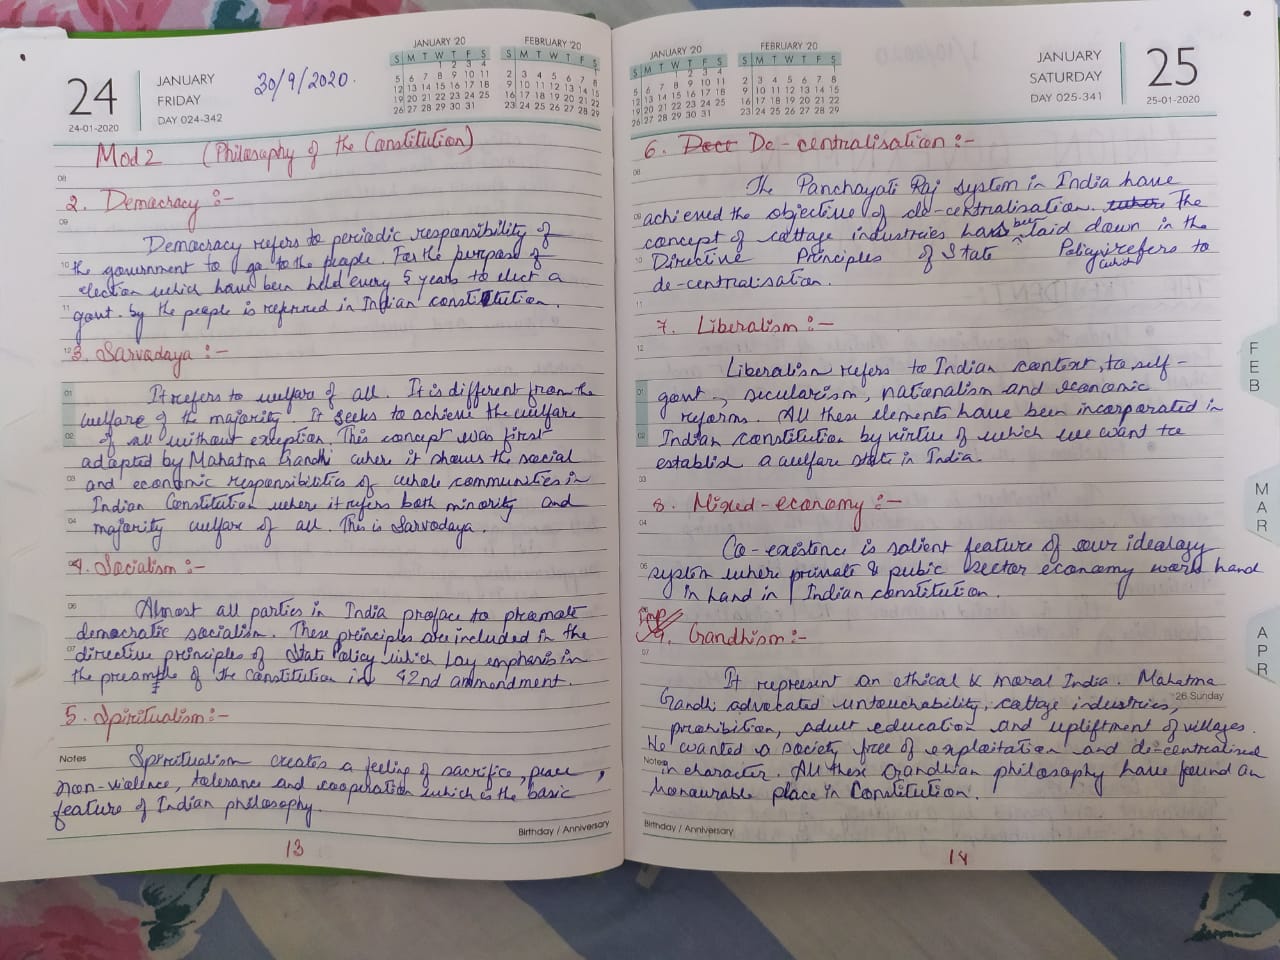 24
24-01-2020
JANUARY
FRIDAY
DAY 024-342
30/9/2020.
JANUARY '20
S M T W T F S
1 2 3 4
5 6 7 8 9 10 11
12 13 14 15 16 17 18
19 20 21 22 23 24 25
26 27 28 29 30 31
FEBRUARY '20
S M T W T F S
1
2 3 4 5 6 7 8
9 10 11 12 13 14 15
16 17 18 19 20 21 22
23 24 25 26 27 28 29
Mod 2 (Philosophy of the Constitution)
08
2. Democracy :-
09
Democracy refers to periodic responsibility of
10 the government to go to the people. For the purpose of
election which have been held every 5 years to elect a
11 govt. by the people is referred in Indian constitution.
12 3. Sarvadaya :-
01 It refers to welfare of all. It is different from the
welfare of the majority. It seeks to achieve the welfare
02 of all without exeption. This concept was first
adapted by Mahatma Gandhi where it shows the social
03 and economic responsibilities of whole communities in
Indian Constitution where it refers both minority and
04 majority welfare of all. This is Sarvodaya.
4. Socialism :-
06 Almost all parties in India proface to promote
democratic socialism. These principles are included in the
07 directive principles of State Policy which lay emphasis in
the preample of the constitution in 42nd ammendment.
5. Spiritualism :-
Notes Spiritualism creates a feeling of sacrifice, peace,
non-violence, tolerance and cooperation which is the basic
feature of Indian philosophy.
Birthday / Anniversary
13
JANUARY '20
S M T W T F S
1 2 3 4
5 6 7 8 9 10 11
12 13 14 15 16 17 18
19 20 21 22 23 24 25
26 27 28 29 30 31
FEBRUARY '20
S M T W T F S
1
2 3 4 5 6 7 8
9 10 11 12 13 14 15
16 17 18 19 20 21 22
23 24 25 26 27 28 29
JANUARY
SATURDAY
DAY 025-341
25
25-01-2020
6. Dect De-centralisation :-
08
The Panchayati Raj system in India have
09 achieved the objective of de-centralisation. where The
concept of cottage industries has been laid down in the
10 Directive Principles of State Policy which refers to
de-centralisation.
11
7. Liberalism :-
12
Liberalism refers to Indian context, to self-
01 govt., secularism, nationalism and economic
reforms. All these elements have been incorporated in
02 Indian constitution by virtue of which we want to
establish a welfare state in India.
03
8. Mixed-economy :-
04
Co-existence is salient feature of our idealogy
05 system where private & pubic sector economy work hand
in hand in Indian constitution.
06
Imp
9. Gandhism :-
07
It represent an ethical & moral India. Mahatma
26 Sunday
Gandhi advocated untouchability, cottage industries,
prohibition, adult education and upliftment of villages.
He wanted a society free of exploitation and de-centralised
Notes in character. All these Gandhian philosophy have found an
honourable place in Constitution.
Birthday / Anniversary
14
FEB
MAR
APR